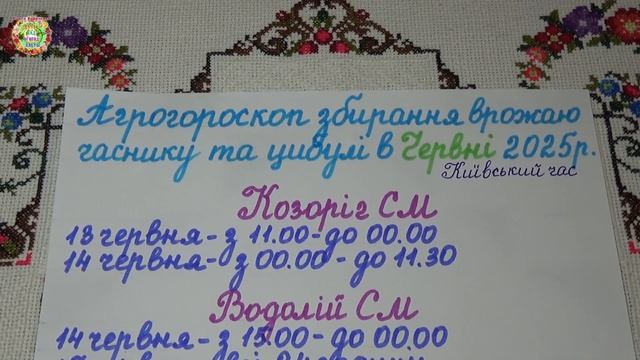 Агрогороскоп збирання врожаю
часнику та цибулі в Червні 2025р.
Київський час
Козоріг СМ
13 червня - з 11.00 - до 00.00
14 червня - з 00.00 - до 11.30
Водолій СМ
14 червня - з 15.00 - до 00.00